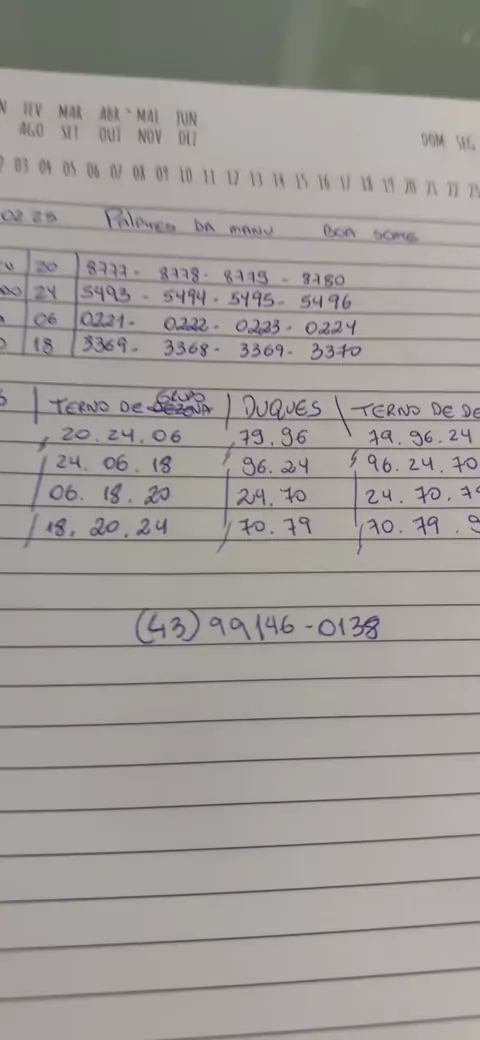 FEV MAR ABR MAI JUN
AGO SET OUT NOV DEZ
DOM SEG
03 04 05 06 07 08 09 10 11 12 13 14 15 16 17 18 19 20 21 22 23
02 25 DA MANU BOA
20 8777 - 8778 - 8779 - 8780
24 5493 - 5494 - 5495 - 5496
06 0221 - 0222 - 0223 - 0224
18 3369 - 3368 - 3369 - 3370
TERNO DE GRUPO DUQUES TERNO DE DE
20.24.06 79.96 79.96.24
24.06.18 96.24 96.24.70
06.18.20 24.70 24.70.79
18.20.24 70.79 70.79.9
(43) 99146-0138